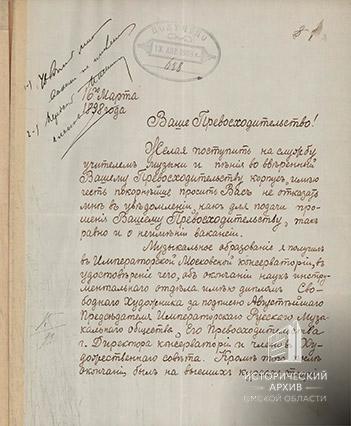 ПОЛУЧЕНО
16 Марта
1898 года
Ваше Превосходительство!
Желая поступить на службу
учителемъ музыки и пѣнія во ввѣренный
Вашему Превосходительству корпусъ, имѣю
честь покорнѣйше просить Васъ не отказать
мнѣ въ увѣдомленіи, какъ для подачи про-
шенія Вашему Превосходительству, такъ
равно и о неимѣніи вакансіи.
Музыкальное образованіе я получилъ
въ Императорской Московской консерваторіи, въ
удостовѣреніе чего, объ окончаніи наукъ инстру-
ментальнаго отдѣла имѣю дипломъ Сво-
боднаго Художника за подписью Августѣйшаго
Предсѣдателя Императорскаго Русскаго Музы-
кальнаго общества, Его Превосходительства
г. Директора консерваторіи и членовъ Ху-
дожественнаго совѣта. Кромѣ того
окончаніи былъ на высшихъ
ИСТОРИЧЕСКИЙ
АРХИВ
ОМСКОЙ ОБЛАСТИ